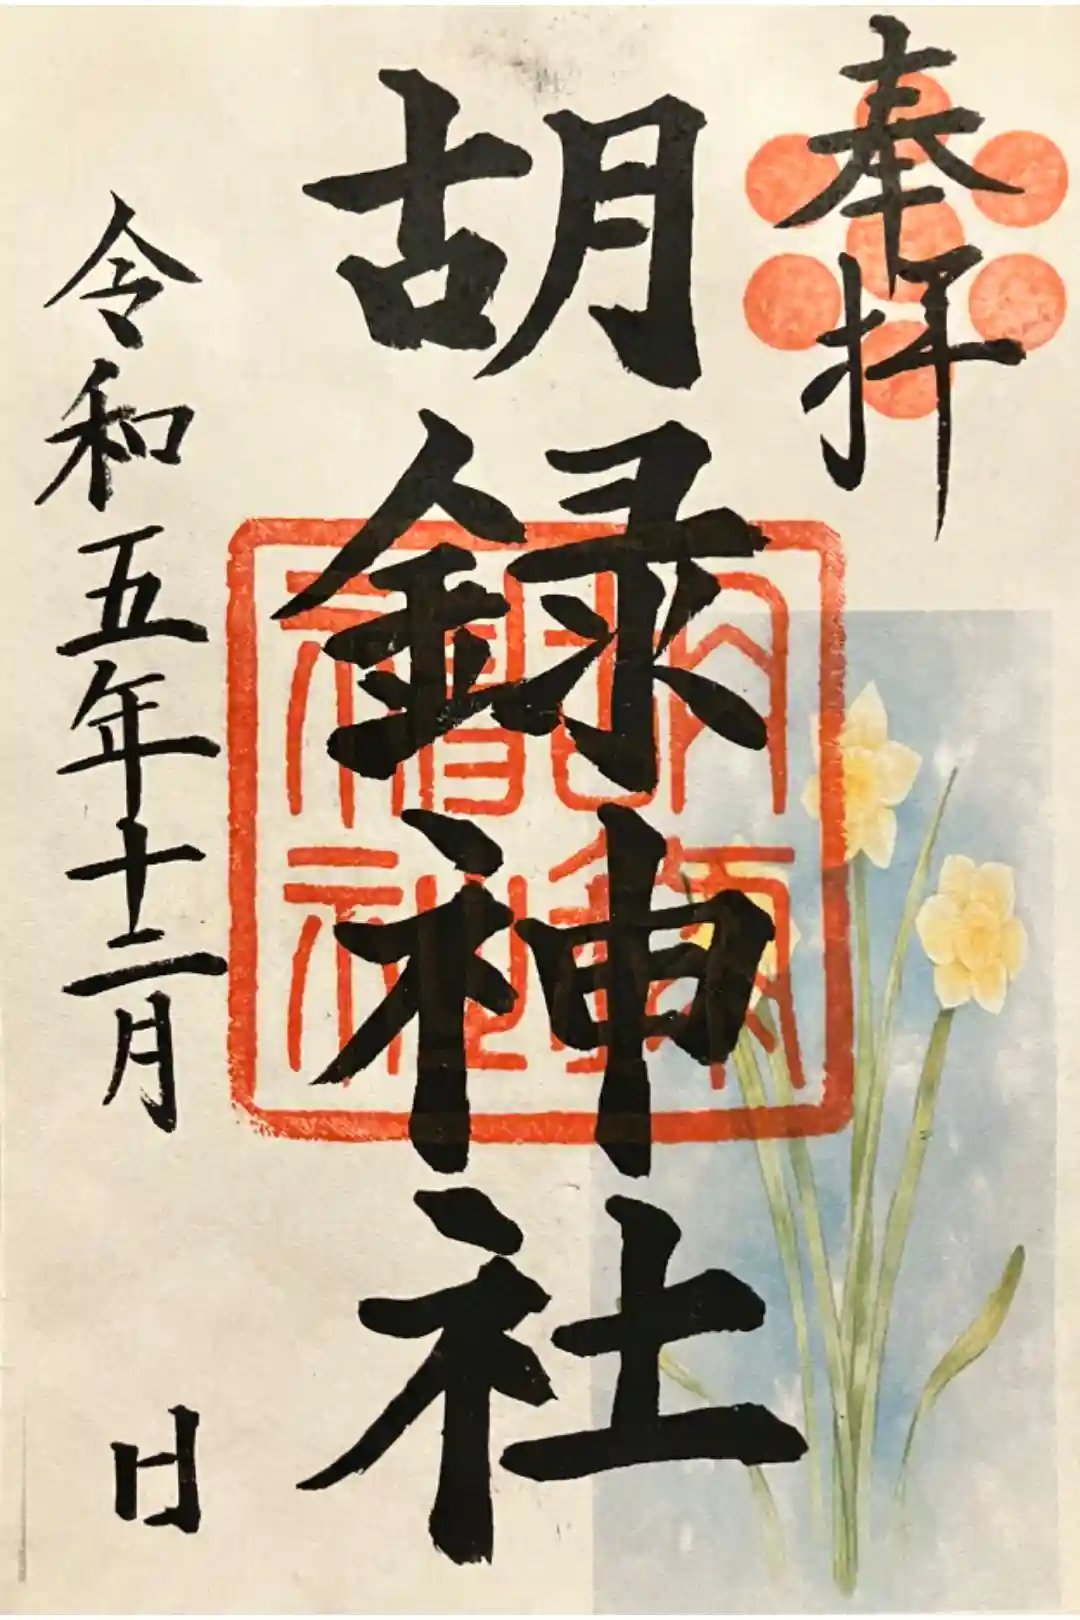 奉拝
胡録神社
令和五年十二月 日